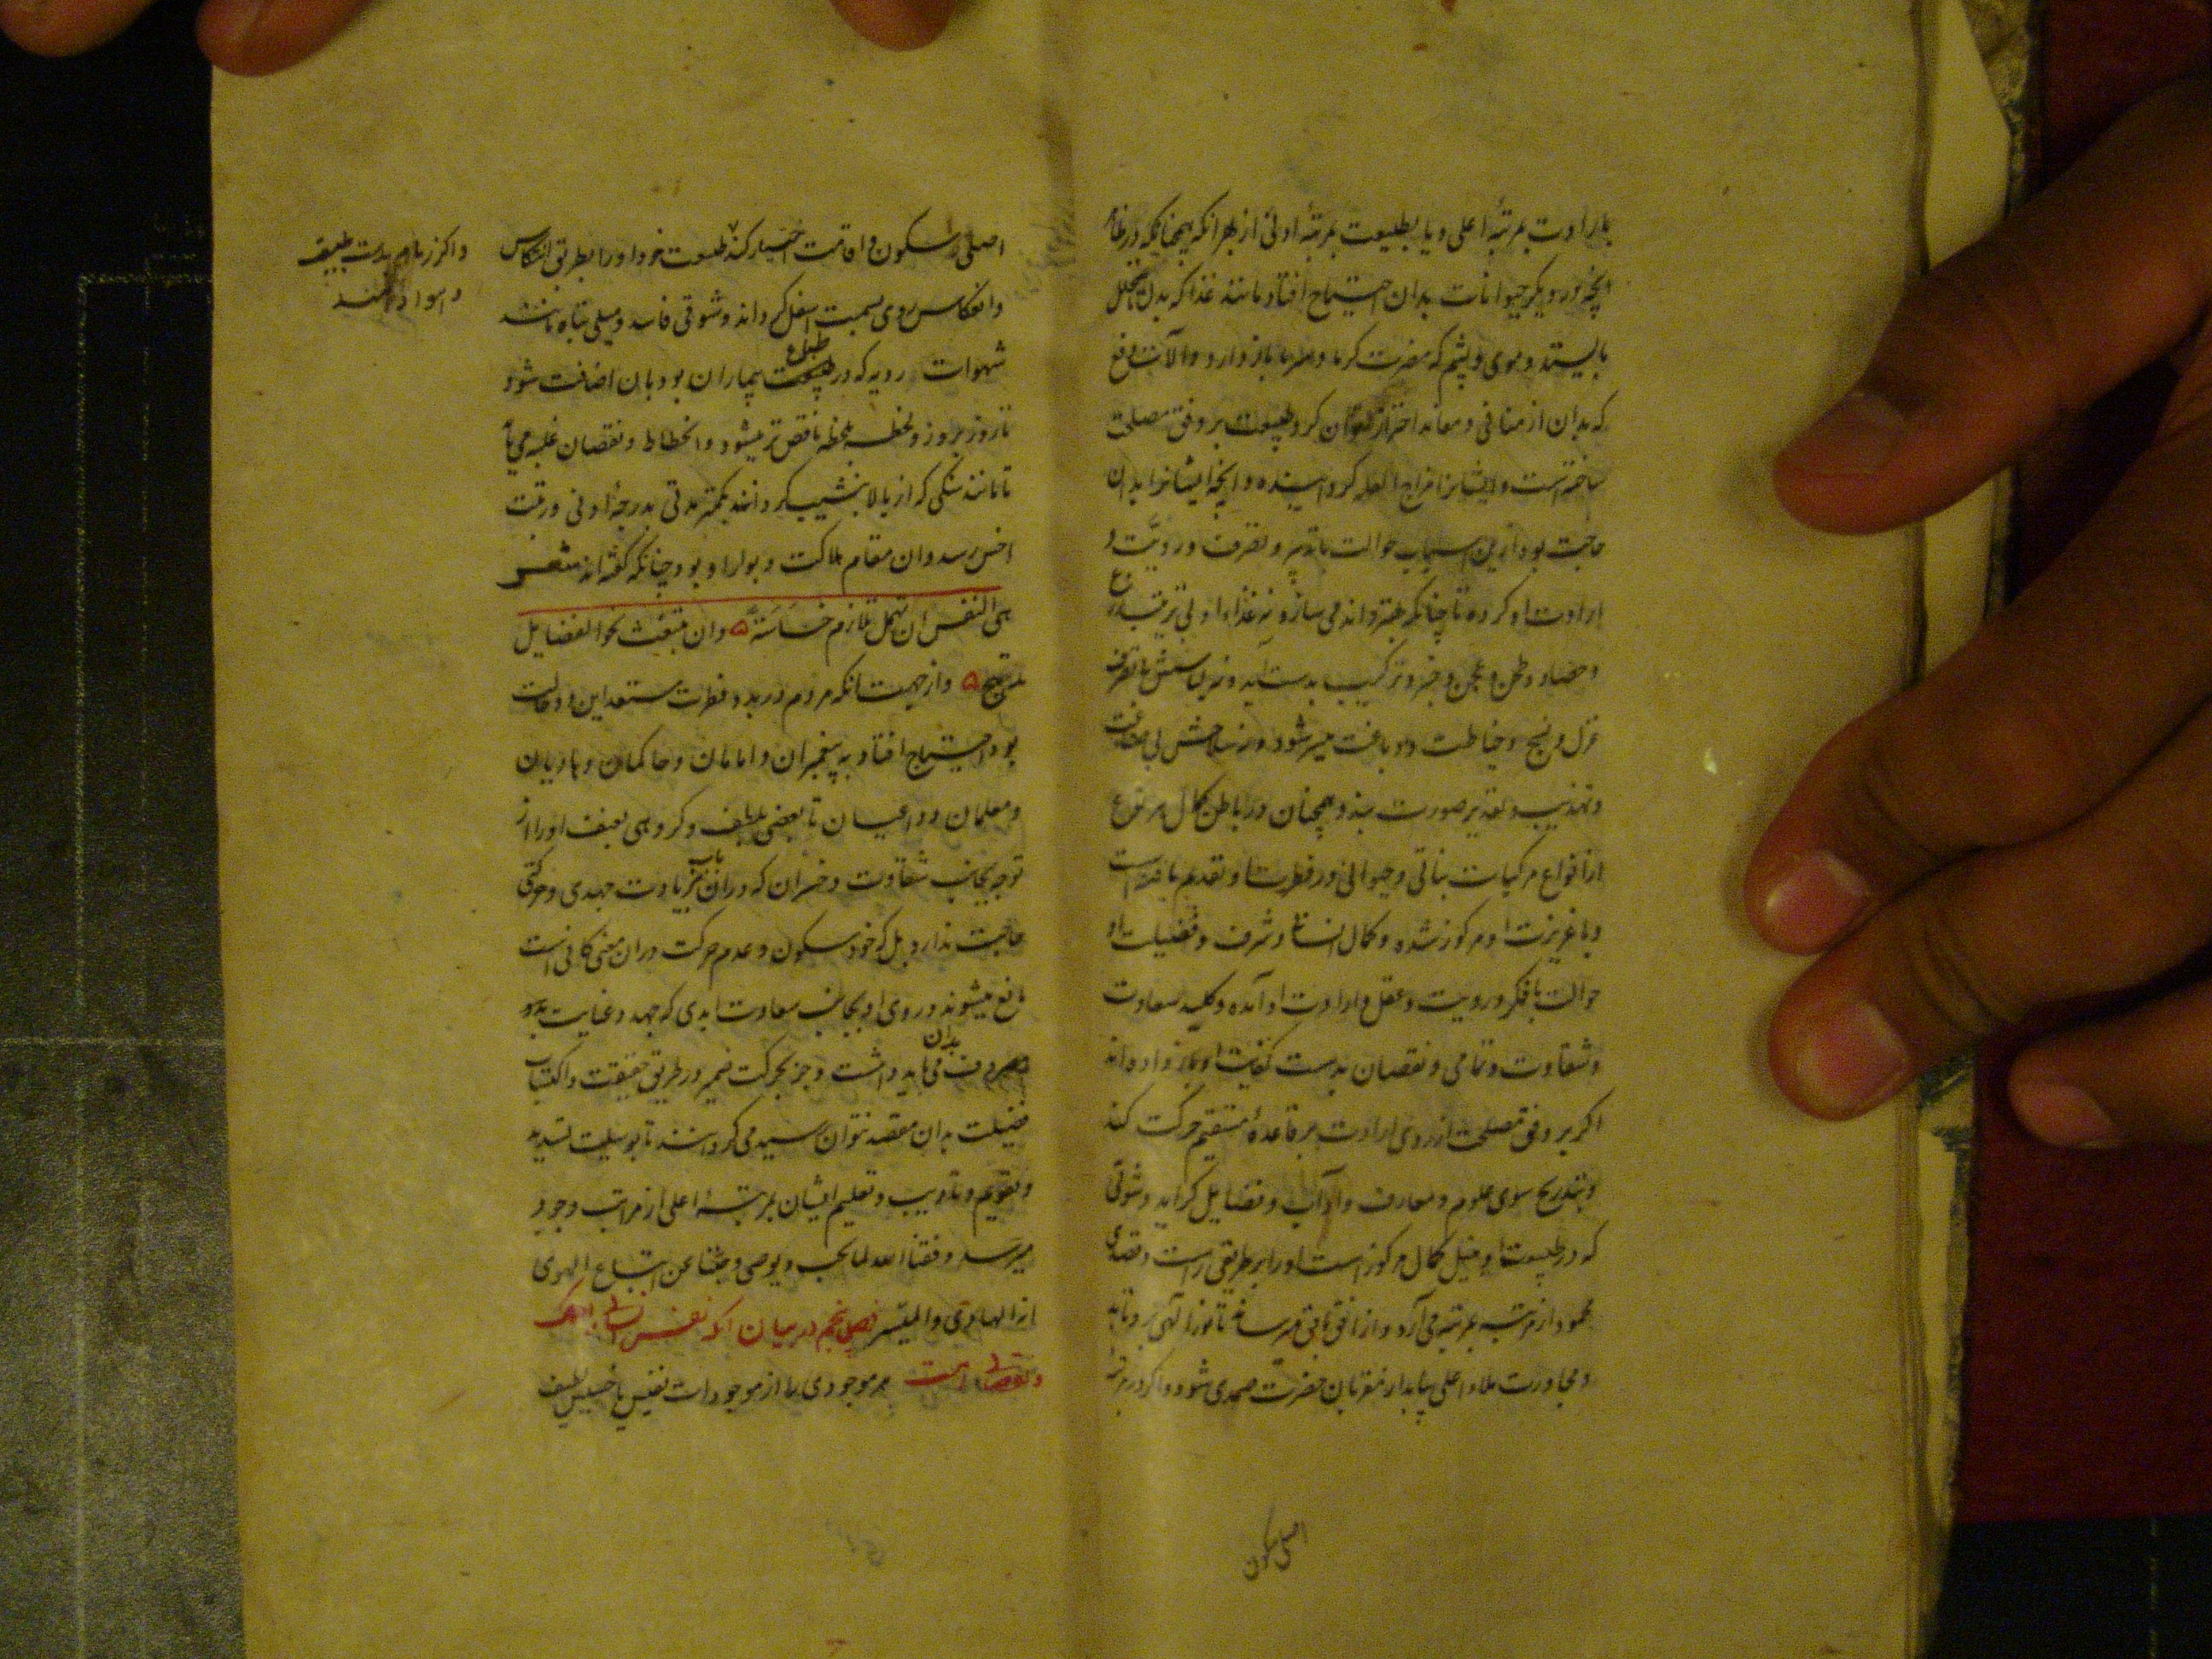 بارادت بمرتبهٔ اعلی و یا بطبیعت بمرتبهٔ ادنی از بهر آنکه همچنانکه در ظاهر
آنچه در دیگر حیوانات بدان احتیاج افتاد مانند غذا که بدل ما یتحلل
بایستد و موی و پشم که مضرت گرما و سرما باز دارد و آلات دفع
که بدان از منافی و معاند احتراز توان کرد طبیعت بر وفق مصلحت
ساخته است و ایشانرا مزاح العله گردانیده و آنچه ایشانرا بدان
حاجت بود ازین اسباب حوالت با تدبیر و تصرف و رویت و
ارادت او کرده تا چنانکه بهتر داند می سازد نه غذاء او بی ترتیب زرع
و حصاد و طحن و عجن و خبز و ترکیب بدست آید و نه لباسش بی تصرف
غزل و نسج و خیاطت و دباغت میسر شود و نه سلاحش بی صناعت
و تهذیب و تقدیر صورت بندد و همچنان در باطن کمال هر نوع
از انواع مرکبات نباتی و حیوانی در فطرت او تقدیم یافته است
و با غریزت او مرکوز شده و کمال انسانی و شرف و فضیلت او
حوالت با فکر و رویت و عقل و ارادت او آمده و کلید سعادت
و شقاوت و تمامی و نقصان بدست کفایت او باز داده اند
اگر بر وفق مصلحت از روی ارادت بر قاعدهٔ مستقیم حرکت کند
و بتدریج سوی علوم و معارف و آداب و فضایل گراید و شوقی
که در طبیعت او بنیل کمال مرکوز است او را بر طریقی راست و قصدی
محمود از مرتبه بمرتبه می آرد و از افق بافق میرساند تا نور الهی برو تابد
و مجاورت ملاء اعلی بیابد از مقربان حضرت صمدی شود و اگر در مرتبه
اصلی سکون
اصلی سکون و اقامت اختیار کند طبیعت خود او را بطریق انتکاس
و انعکاس روی بسمت اسفل گرداند و شوقی فاسد و میلی تباه مانند
شهوات ردیه که در طباع بیماران بود بان اضافت شود
تا روز بروز و لحظه بلحظه ناقص تر میشود و انحطاط و نقصان غلبه می یابد
تا مانند سنگی که از بالا بنشیب گردانند بکمتر مدتی بدرجهٔ ادنی و رتبت
اخس رسد و ان مقام هلاکت و بوار او بود چنانکه گفته اند شعر
هی النفس ان تهمل تلازم خساسة ۵ و ان تبتعث نحو الفضایل
تلهج ۵ و از جهت انکه مردم در بدو فطرت مستعد این دو حالت
بود احتیاج افتاد به پیغمبران و امامان و حاکمان و هادیان
و معلمان و داعیان تا بعضی بلطف و گروهی بعنف او را از
توجه بجانب شقاوت و خسران که در ان باب بزیادت جهدی و حرکتی
حاجت ندارد بل که خود سکون و عدم حرکت در ان معنی کافی است
مانع میشوند و روی او بجانب سعادت ابدی که جهد و عنایت
بدان مصروف می باید داشت و جز بحرکت ضمیر در طریق حقیقت و اکتساب
فضیلت بدان مقصد نتوان رسید می گردانند تا بوسیلت تسدید
و تقویم و تادیب و تعلیم ایشان بمرتبهٔ اعلی از مراتب وجود
میرسد وفقنا الله لما یحب و یرضی و جنبنا عن اتباع الهوی
انه الهادی و المیسر فصل پنجم در بیان آنکه نفس انسانی را کمالی
و نقصانی است هر موجودی را از موجودات نفیس یا خسیس لطیف
و اگر زمام بدست طبیعت